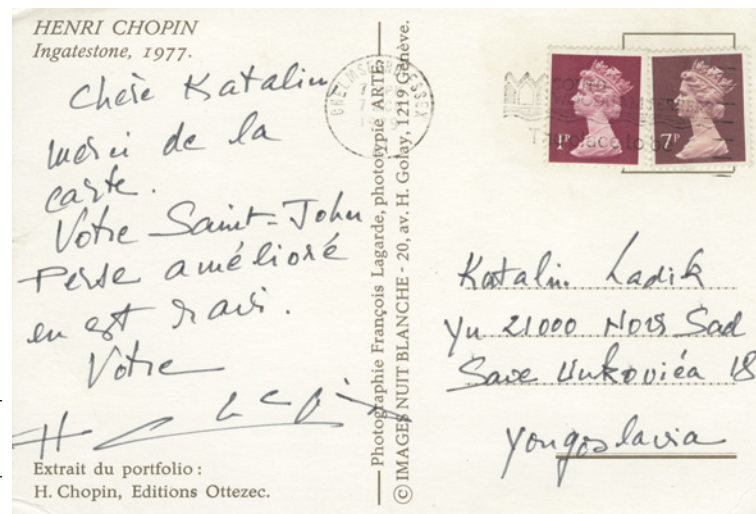 HENRI CHOPIN
Ingatestone, 1977.
Chère Katalin
merci de la
carte.
Votre Saint-John
Perse amélioré
en est ravi.
Votre
H Chopin
Extrait du portfolio :
H. Chopin, Editions Ottezec.
Photographie François Lagarde, phototypie ARTE.
© IMAGES NUIT BLANCHE - 20, av. H. Golay, 1219 Genève.
CHELMSFORD ESSEX
The place to be
1P
7P
Katalin Ladik
Yu 21000 Novi Sad
Save Vukoviéa 18
Yougoslavia